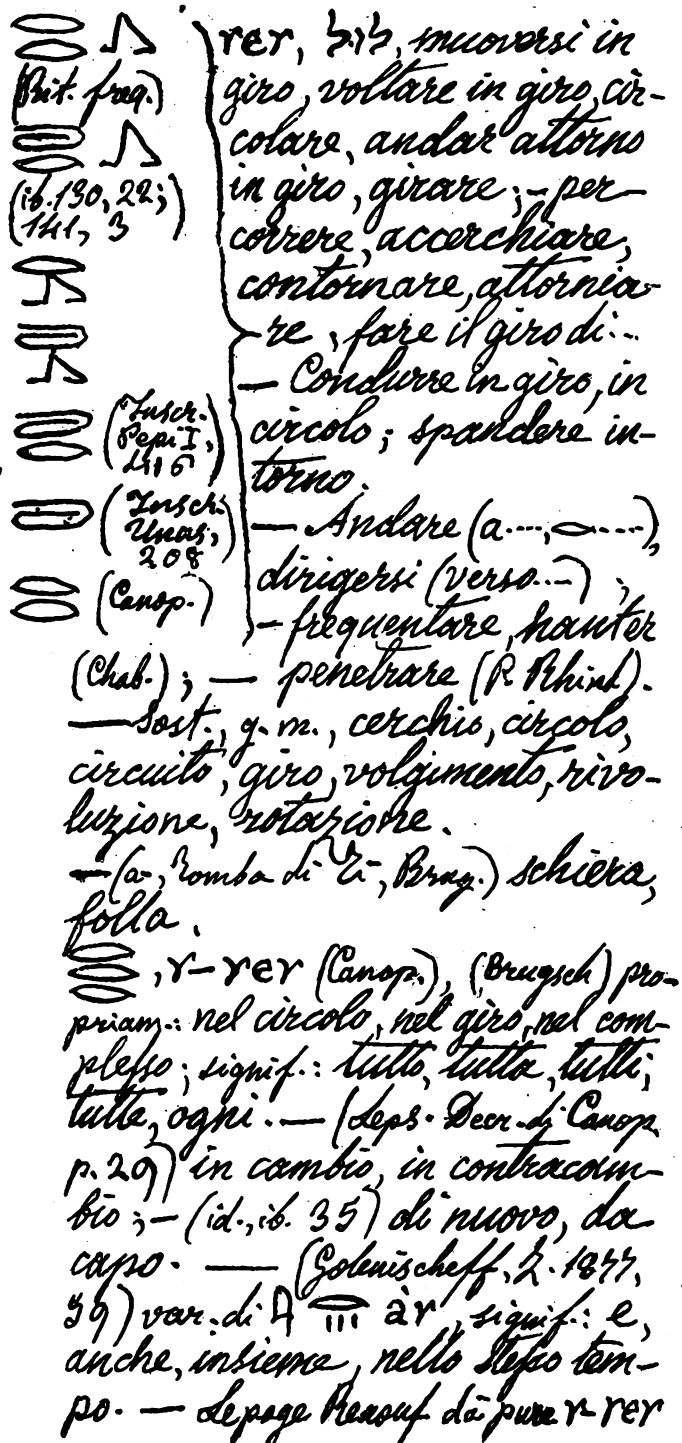 𓂋𓂋𓂻 rer, muoversi in
(Rit. freq.) giro, voltare in giro, cir-
colare, andar attorno
(ib. 130, 22; in giro, girare; — per-
141, 3) correre, accerchiare,
contornare, attornia-
re, fare il giro di...
— Condurre in giro, in
(Inscr. Pepi I, 416) circolo; spandere in-
torno.
(Inscr. Unas, 208) — Andare (a...., 𓂋....),
(Canop.) dirigersi (verso...);
— frequentare, hanter
(Chab.); — penetrare (P. Rhind).
— Sost., g. m., cerchio, circolo,
circuito, giro, volgimento, rivo-
luzione, rotazione.
— (a-, Tomba di Ti, Brug.) schiera,
folla.
𓂋𓂋𓂋, r-rer (Canop.), (Brugsch) pro-
priam.: nel circolo, nel giro, nel com-
plesso; signif.: tutto, tutta, tutti,
tutte, ogni. — (Leps. Decr. di Canop.
p. 29) in cambio, in contraccam-
bio; — (id., ib. 35) di nuovo, da
capo. — (Golenischeff, Z. 1877,
59) var. di ȧr, signif.: e,
anche, insieme, nello stesso tem-
po. — Lepage Renouf dà pure r-rer